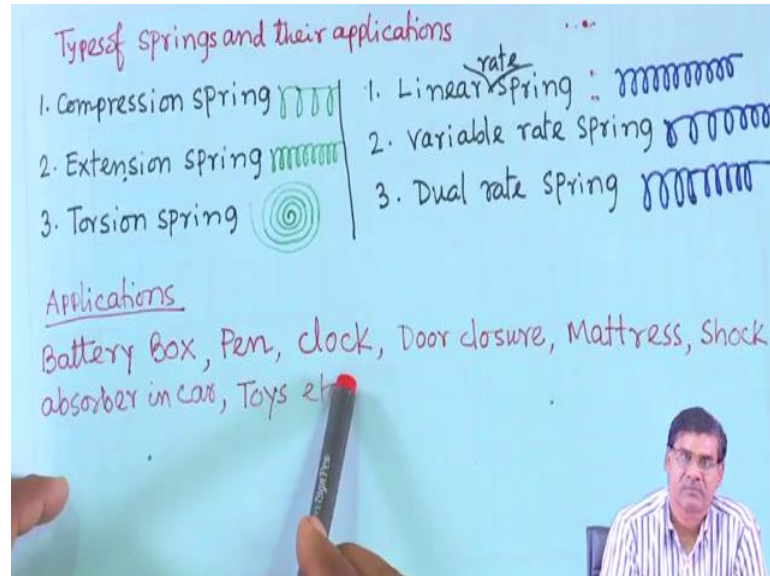 Types of springs and their applications
1. Compression spring
2. Extension spring
3. Torsion spring
rate
1. Linear spring :
2. Variable rate spring
3. Dual rate spring
Applications
Battery Box, Pen, clock, Door closure, Mattress, Shock
absorber in car, Toys et